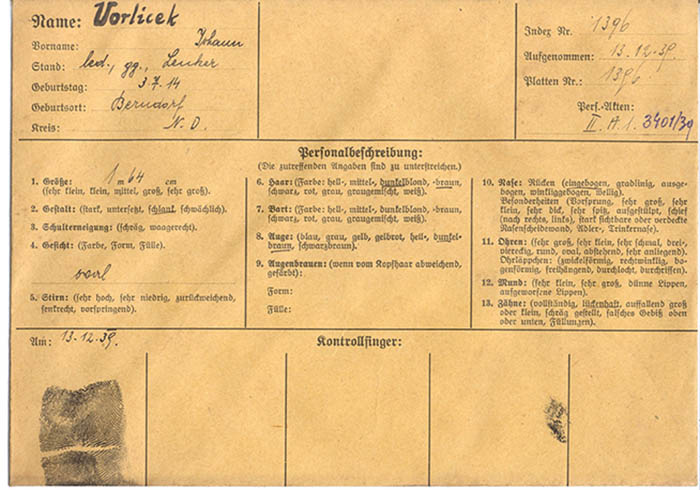 Name: Vorlicek
Vorname: Johann
Stand: led., gg., Lenker
Geburtstag: 3.7.14
Geburtsort: Berndorf
Kreis: N.D.
Index Nr. 1396
Aufgenommen: 13.12.39.
Platten Nr.: 1396
Pers.-Akten:
II. A. 1. 3401/39
Personalbeschreibung:
(Die zutreffenden Angaben sind zu unterstreichen.)
1. Größe: 1 m 64 cm
(sehr klein, klein, mittel, groß, sehr groß).
2. Gestalt: (stark, untersetzt, schlank, schwächlich).
3. Schulterneigung: (schräg, waagerecht).
4. Gesicht: (Farbe, Form, Fülle).
oval
5. Stirn: (sehr hoch, sehr niedrig, zurückweichend,
senkrecht, vorspringend).
6. Haar: (Farbe: hell-, mittel-, dunkelblond, -braun,
schwarz, rot, grau, graugemischt, weiß).
7. Bart: (Farbe: hell-, mittel-, dunkelblond, -braun,
schwarz, rot, grau, graugemischt, weiß).
8. Auge: (blau, grau, gelb, gelbrot, hell-, dunkel-
braun, schwarzbraun).
9. Augenbrauen: (wenn vom Kopfhaar abweichend,
gefärbt):
Form:
Fülle:
10. Nase: Rücken (eingebogen, gradlinig, ausge-
bogen, winkliggebogen, wellig).
Besonderheiten (Vorsprung, sehr groß, sehr
klein, sehr dick, sehr spitz, aufgestülpt, schief
(nach rechts, links), stark sichtbare oder verdeckte
Nasenscheidewand, Adler-, Trinkernase).
11. Ohren: (sehr groß, sehr klein, sehr schmal, drei-
viereckig, rund, oval, abstehend, sehr anliegend).
Ohrläppchen: (zwickelförmig, rechtwinklig, bo-
genförmig, freihängend, durchlocht, durchrissen).
12. Mund: (sehr klein, sehr groß, dünne Lippen,
aufgeworfene Lippen).
13. Zähne: (vollständig, lückenhaft, auffallend groß
oder klein, schräg gestellt, falsches Gebiß oben
oder unten, Füllungen).
Am: 13.12.39.
Kontrollfinger: